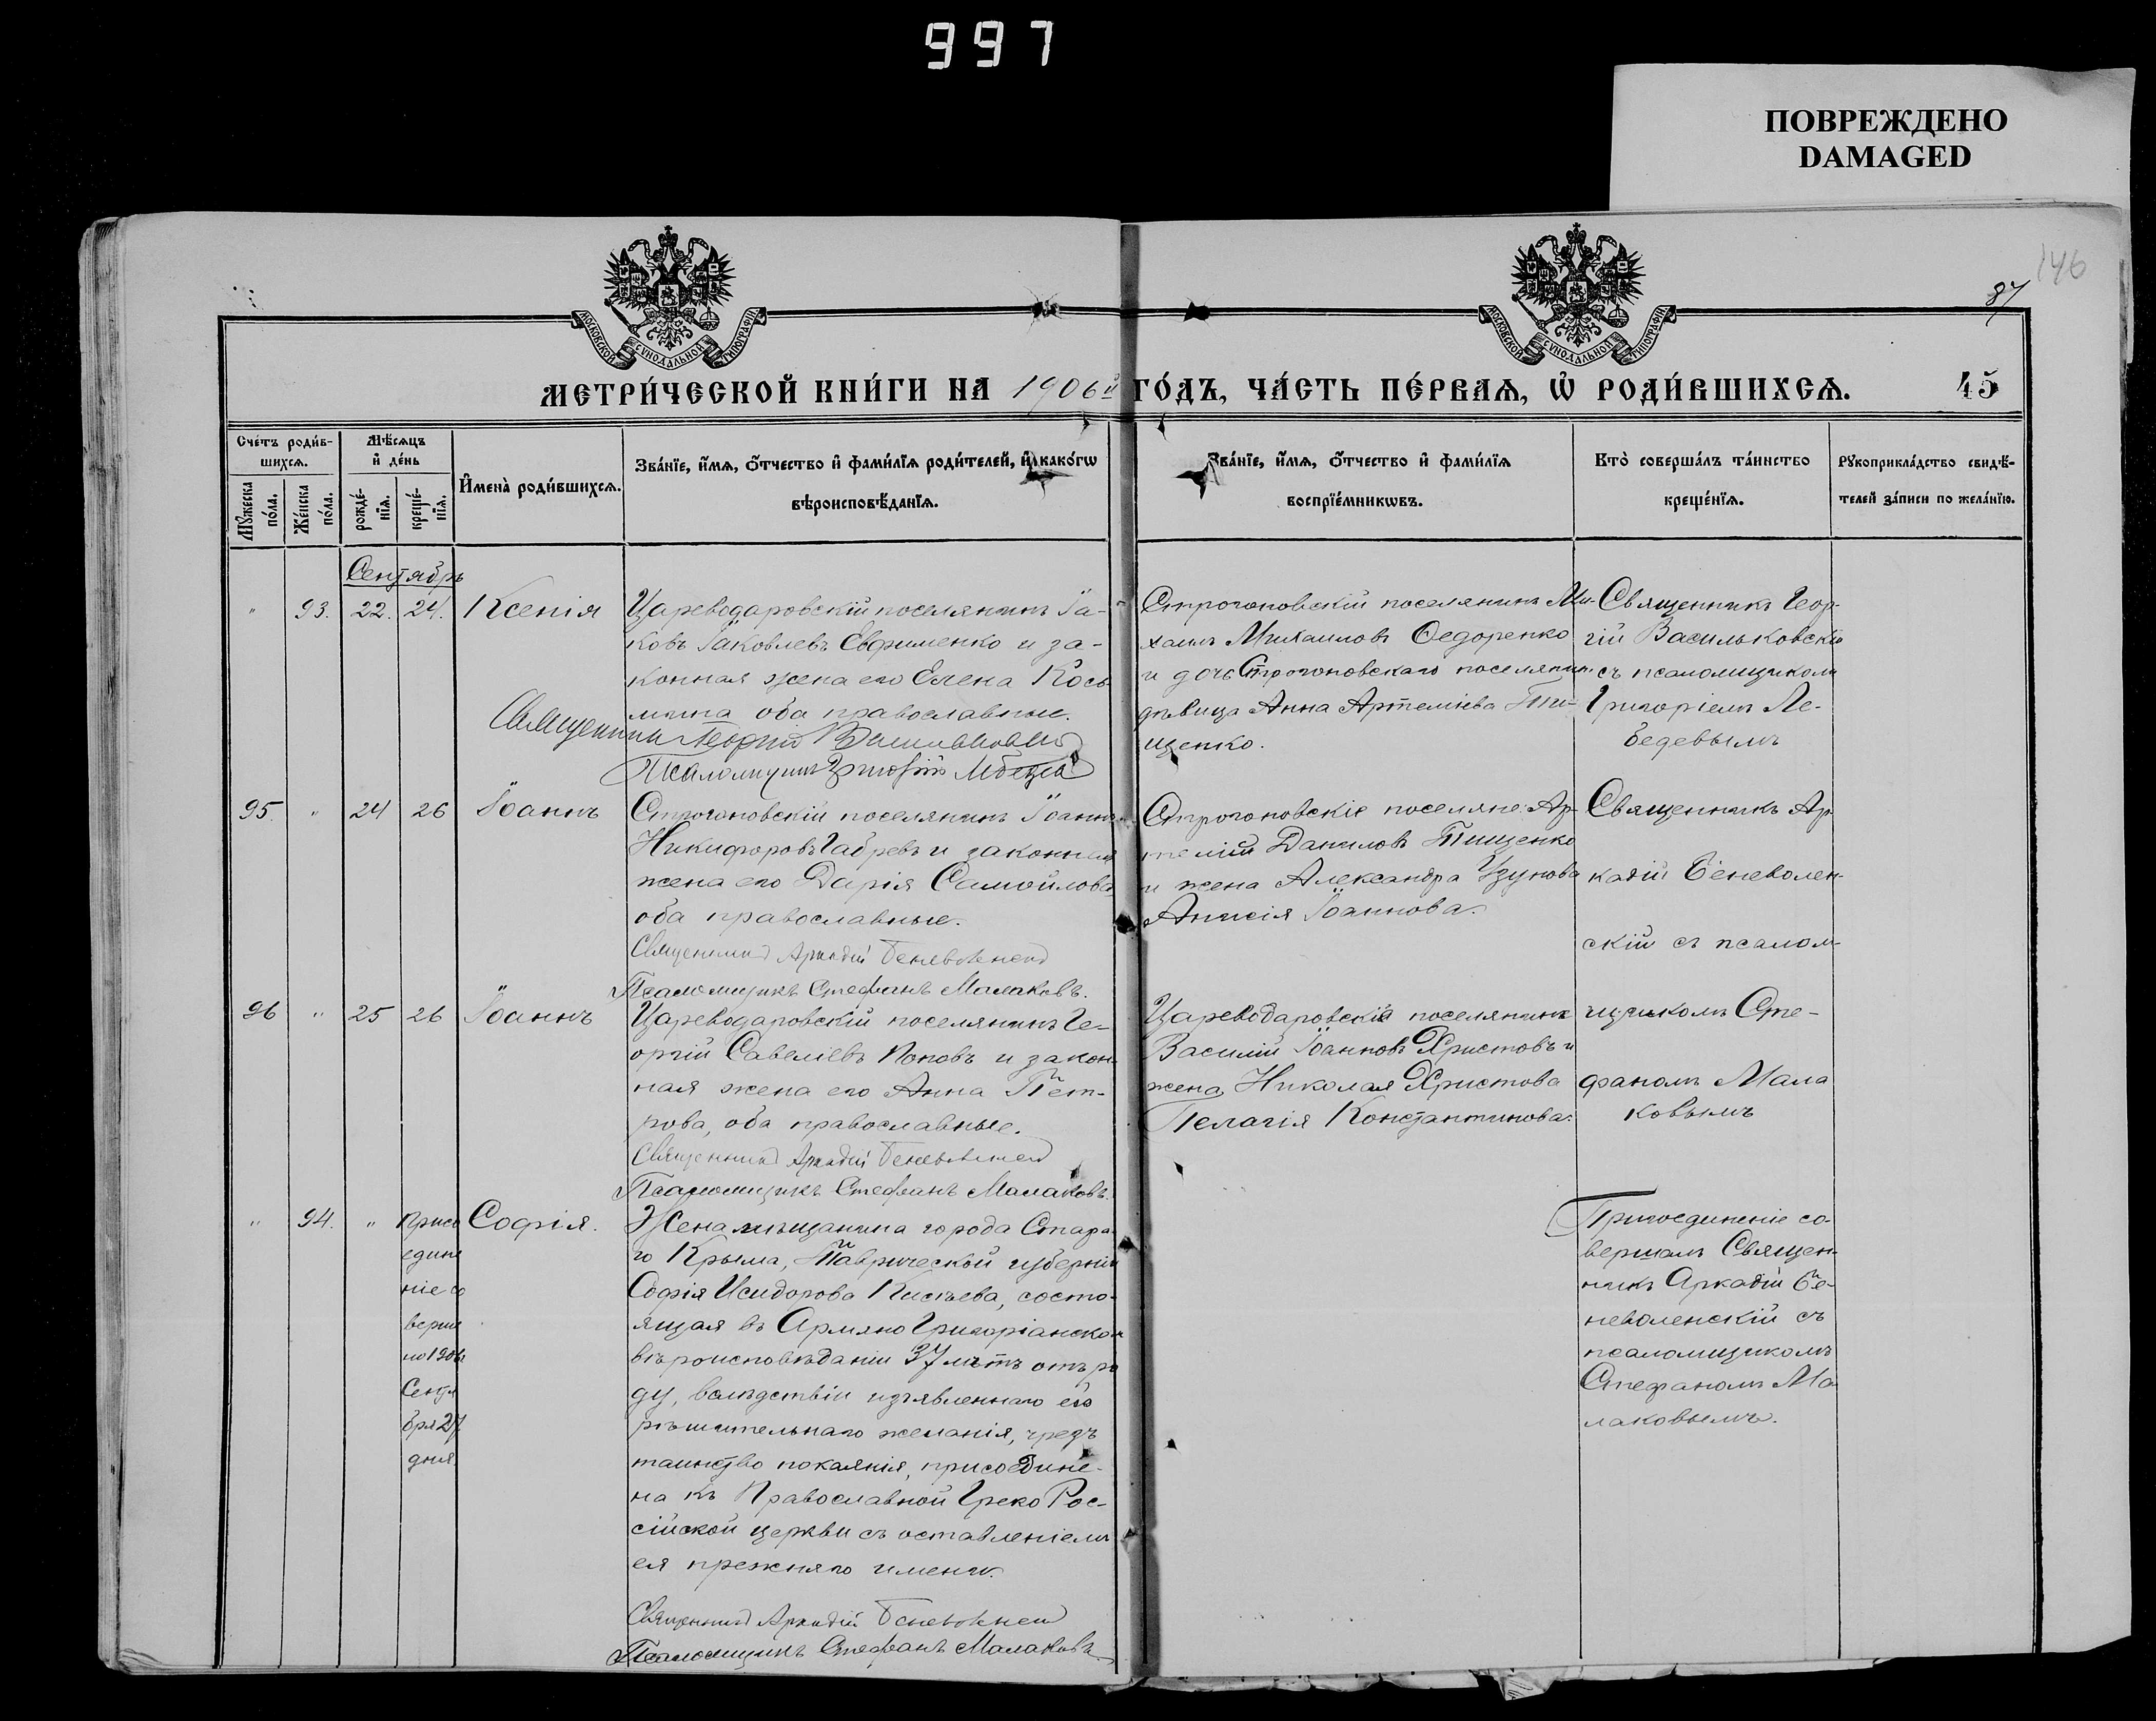 997
ПОВРЕЖДЕНО
DAMAGED
146
87
МОСКОВСКОЙ СѴНОДАЛЬНОЙ ТИПОГРАФІИ
МОСКОВСКОЙ СѴНОДАЛЬНОЙ ТИПОГРАФІИ
МЕТРИ́ЧЕСКОЙ КНИ́ГИ НА 1906й ГО́ДЪ, ЧА́СТЬ ПЕ́РВАѦ, Ѡ҆ РОДИ́ВШИХСѦ. 45
Сче́тъ роди́в-
шихсѧ.
Мꙋ́жеска по́ла.
Же́нска по́ла.
Мѣ́сѧцъ
и҆ де́нь
рожде́-
нїѧ.
креще́-
нїѧ.
И҆мена̀ роди́вшихсѧ.
Зва́нїе, и҆́мѧ, ѻ҆́тчество и҆ фами́лїѧ роди́телей, и҆ како́гѡ
вѣроисповѣ́данїѧ.
Зва́нїе, и҆́мѧ, ѻ҆́тчество и҆ фами́лїѧ
воспрїе́мникѡвъ.
Кто̀ соверша́лъ та́инство
креще́нїѧ.
Рꙋкоприкла́дство свидѣ́-
телей за́писи по жела́нїю.
Сентябрь
" 93. 22. 24. Ксенія
Цареводаровскій поселянинъ Іа-
ковъ Іаковлевъ Евфименко и за-
конная жена его Елена Кось-
мина оба православные.
Священникъ Георгій Васильковскій
Псаломщикъ Григорій Лебедевъ
Строгоновскій поселянинъ Ми-
хаилъ Михаиловъ Ѳедоренко
и дочь Строгоновскаго поселянина
дѣвица Анна Артеміева Ти-
щенко.
Священникъ Геор-
гій Васильковскій
съ псаломщикомъ
Григоріемъ Ле-
бедевымъ
95. " 24 26 Іоаннъ
Строгоновскій поселянинъ Іоаннъ
Никифоровъ Габревъ и законная
жена его Дарія Самойлова
оба православные.
Священникъ Аркадій Беневоленскій
Псаломщикъ Стефанъ Малаковъ.
Строгоновскіе поселяне: Ар-
темій Даниловъ Тищенко
и жена Александра Узунова
Анисія Іоаннова.
Священникъ Ар-
кадій Беневолен-
скій съ псалом-
96 " 25 26 Іоаннъ
Цареводаровскій поселянинъ Ге-
оргій Савеліевъ Поповъ и закон-
ная жена его Анна Пет-
рова, оба православные.
Священникъ Аркадій Беневоленскій
Псаломщикъ Стефанъ Малаковъ.
Цареводаровскій поселянинъ
Василій Іоанновъ Христовъ и
жена Николая Христова
Пелагія Константинова.
щикомъ Сте-
фаномъ Мала
ковымъ
" 94. " присо
едине
ніе со
верше
но 1906
Сентя
бря 27
дня.
Софія.
Жена мѣщанина города Стара-
го Крыма, Таврической губерніи
Софія Исидорова Кисѣева, состо-
ящая въ Армяно Григоріанскомъ
вѣроисповѣданіи 37 лѣтъ отъ ро
ду, вслѣдствіи изъявленнаго ею
рѣшительнаго желанія, чрезъ
таинство покаянія, присоедине-
на къ Православной Греко Рос-
сійской церкви съ оставленіемъ
ея прежняго имени.
Священникъ Аркадій Беневоленскій
Псаломщикъ Стефанъ Малаковъ
Присоединеніе со-
вершалъ Священ-
никъ Аркадій Бе-
неволенскій съ
псаломщикомъ
Стефаномъ Ма
лаковымъ.